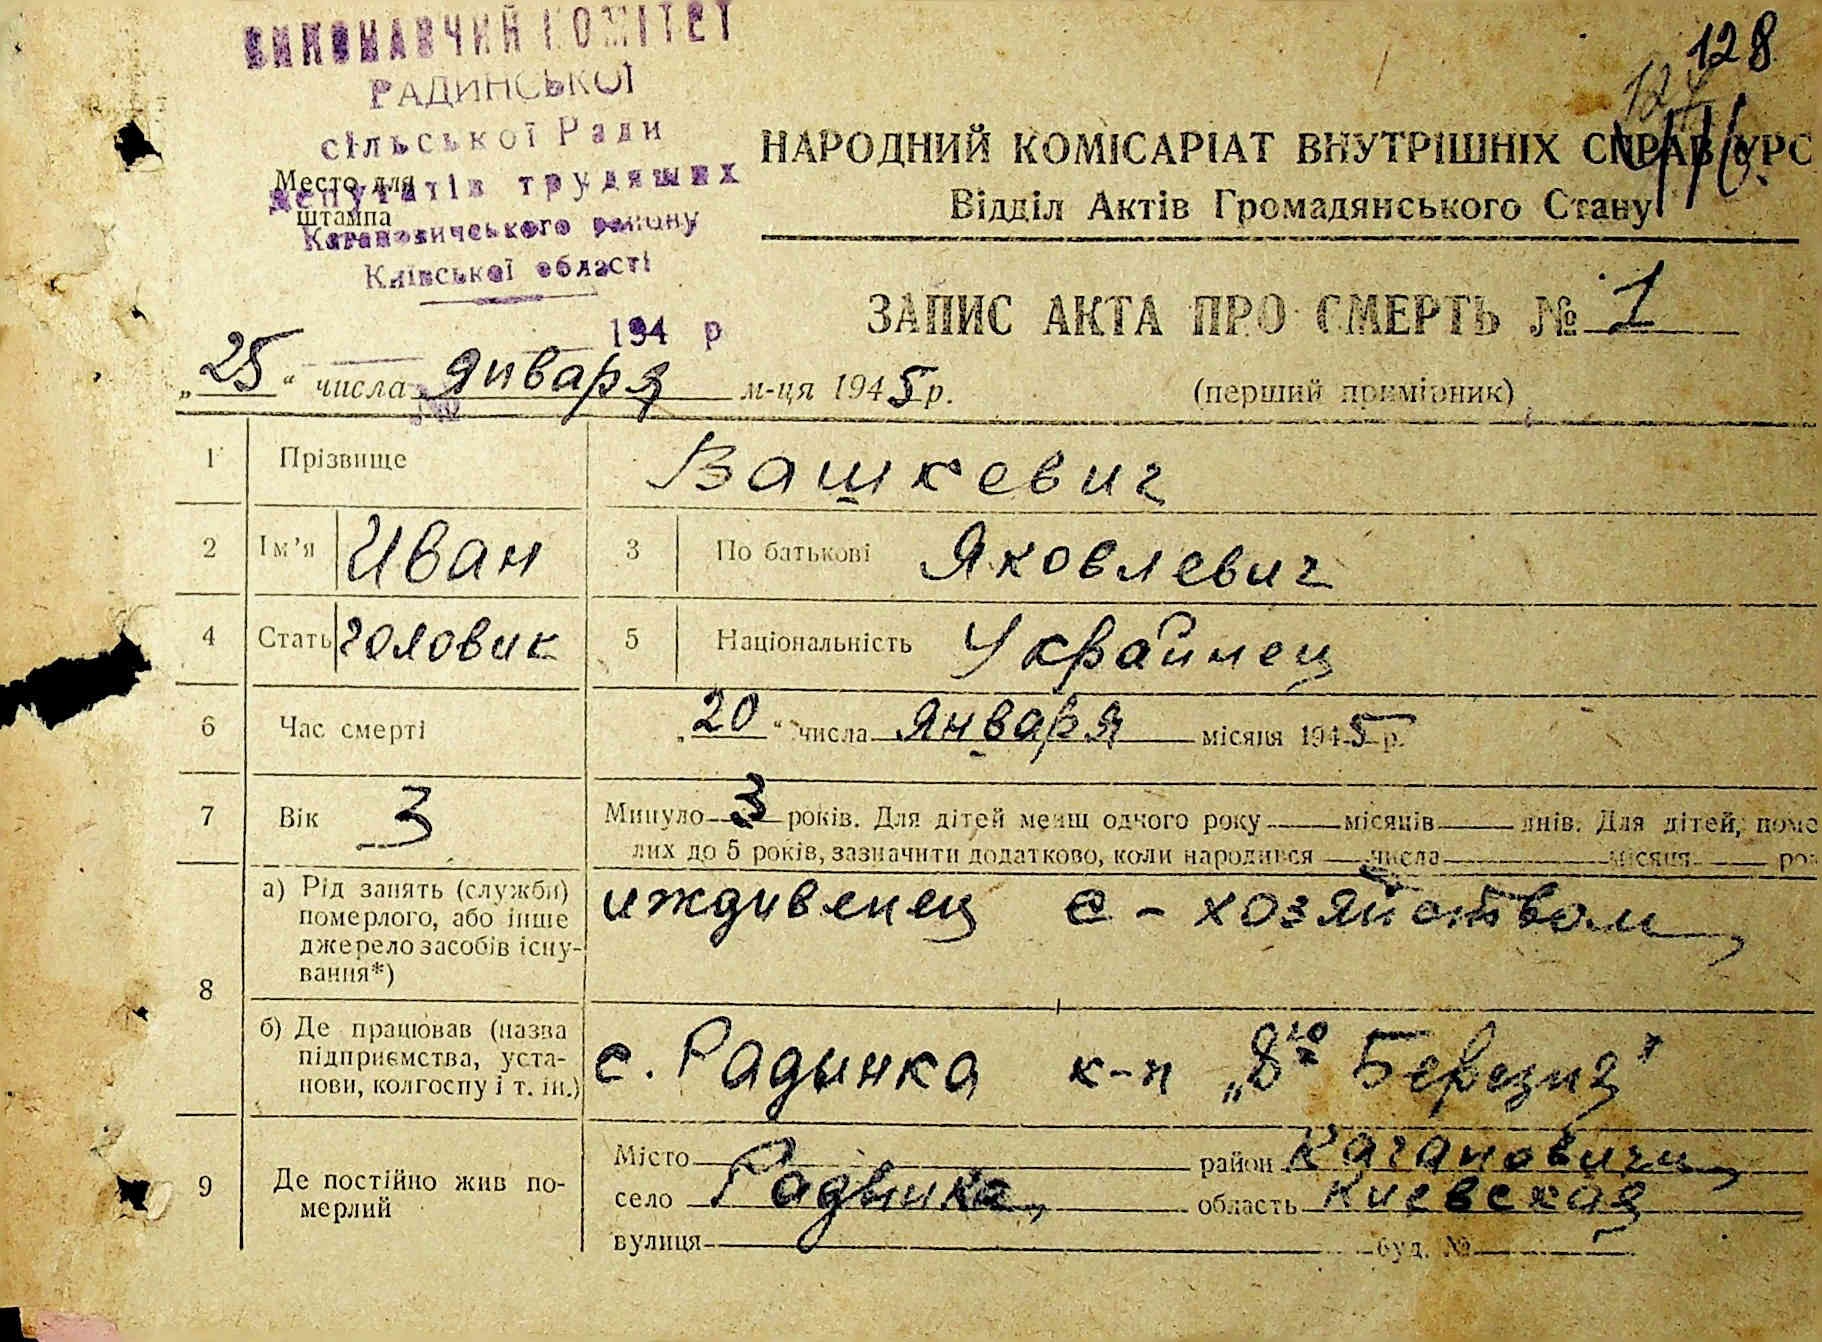 128
124
116
ВИКОНАВЧИЙ КОМІТЕТ
РАДИНСЬКОЇ
сільської Ради
депутатів трудящих
Кагановичського району
Київської області
194 р
Место для
штампа
НАРОДНИЙ КОМІСАРІАТ ВНУТРІШНІХ СПРАВ УРСР
Відділ Актів Громадянського Стану
ЗАПИС АКТА ПРО СМЕРТЬ № 1
„25“ числа января м-ця 1945 р.
(перший примірник)
1 Прізвище Вашкевич
2 Ім’я Иван 3 По батькові Яковлевич
4 Стать чоловик 5 Національність Украйинец
6 Час смерті „20“ числа января місяця 1945 р.
7 Вік 3 Минуло 3 років. Для дітей менш одного року місяців днів. Для дітей, поме
лих до 5 років, зазначити додатково, коли народився числа місяця ро
8 а) Рід занять (служби) померлого, або інше джерело засобів існу-вання*) иждивенец с-хозяйством
б) Де працював (назва підприємства, уста-нови, колгоспу і т. ін.) с. Радинка к-п „8го Березня"
9 Де постійно жив по-мерлий
Місто район Кагановичи
село Радынка, область Киевская
вулиця буд. №